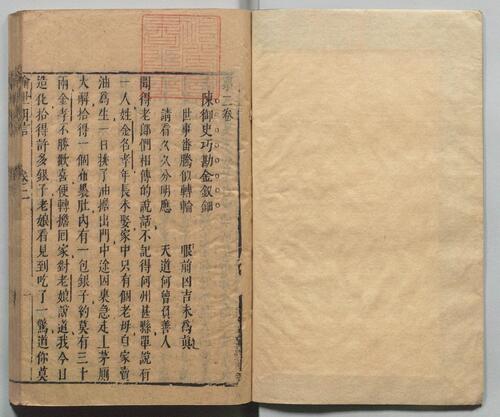 第二卷
陳御史巧勘金釵鈿
世事番騰似轉輪　眼前凶吉未為真
請看久久分明應　天道何曾負善人
聞得老郎們相傳的說話不記得何州甚縣單說有
一人姓金名孝年長未娶家中只有個老母自家賣
油為生一日挑了油擔出門中途因裏急走上茅廁
大解拾得一個布裹肚內有一包銀子約莫有三十
兩金孝不勝歡喜便轉擔回家對老娘說道我今日
造化拾得許多銀子老娘看見到吃了一驚道你莫
喻世明言　卷二